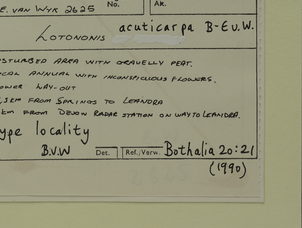 E. VAN WYK 2625 No. Ak.
LOTONONIS acuticarpa B-E v.W.
STURBED AREA WITH GRAVELLY PEAT.
ICAL ANNUAL WITH INCONSPICUOUS FLOWERS.
OWER LAY-OUT
5KM FROM SPRINGS TO LEANDRA
KM FROM DEVON RADAR STATION ON WAY TO LEANDRA.
ype locality
B.V.W Det. Ref./Verw. Bothalia 20:21
(1990)